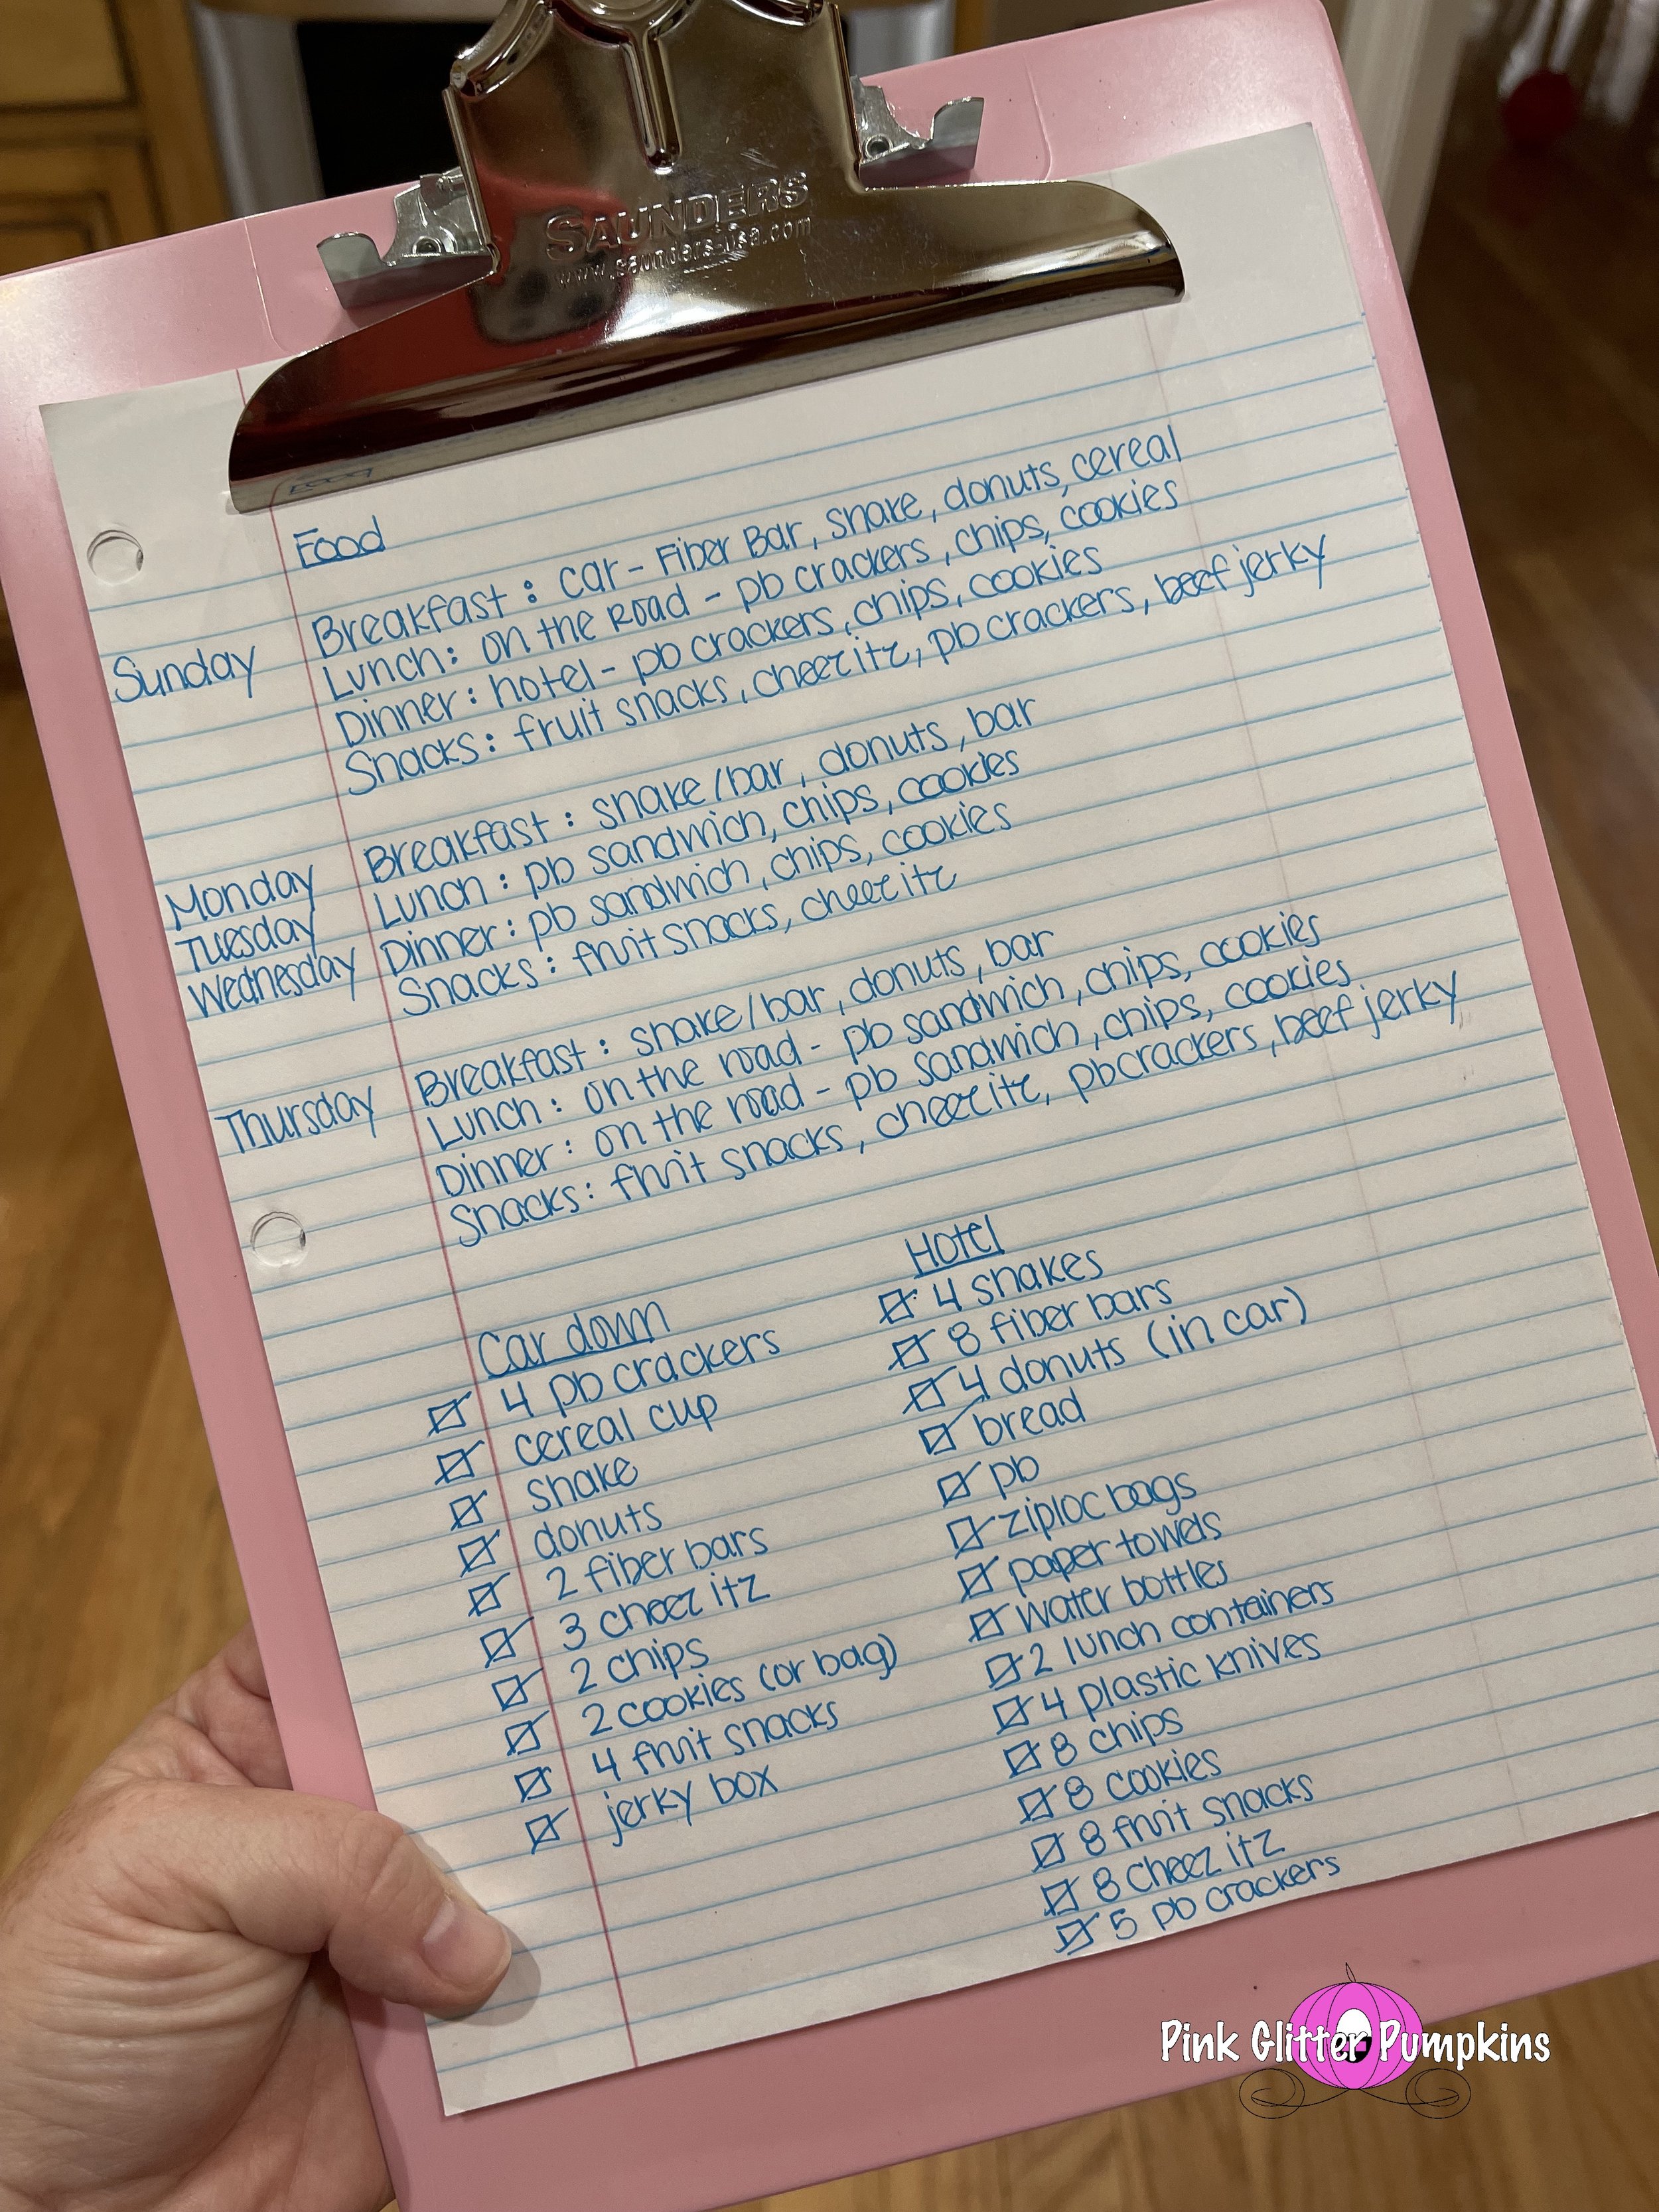 SAUNDERS
www.saunders-usa.com
Food
Sunday
Breakfast: car - Fiber Bar, shake, donuts, cereal
Lunch: on the road - pb crackers, chips, cookies
Dinner: hotel - pb crackers, chips, cookies
Snacks: fruit snacks, cheez itz, pb crackers, beef jerky
Monday
Tuesday
Wednesday
Breakfast: shake/bar, donuts, bar
Lunch: pb sandwich, chips, cookies
Dinner: pb sandwich, chips, cookies
Snacks: fruit snacks, cheez itz
Thursday
Breakfast: shake/bar, donuts, bar
Lunch: on the road - pb sandwich, chips, cookies
Dinner: on the road - pb sandwich, chips, cookies
Snacks: fruit snacks, cheez itz, pb crackers, beef jerky
Car down
4 pb crackers
cereal cup
shake
donuts
2 fiber bars
3 cheez itz
2 chips
2 cookies (or bag)
4 fruit snacks
jerky box
Hotel
4 shakes
8 fiber bars
4 donuts (in car)
bread
pb
ziploc bags
paper towels
water bottles
2 lunch containers
4 plastic knives
8 chips
8 cookies
8 fruit snacks
8 cheez itz
5 pb crackers
Pink Glitter Pumpkins